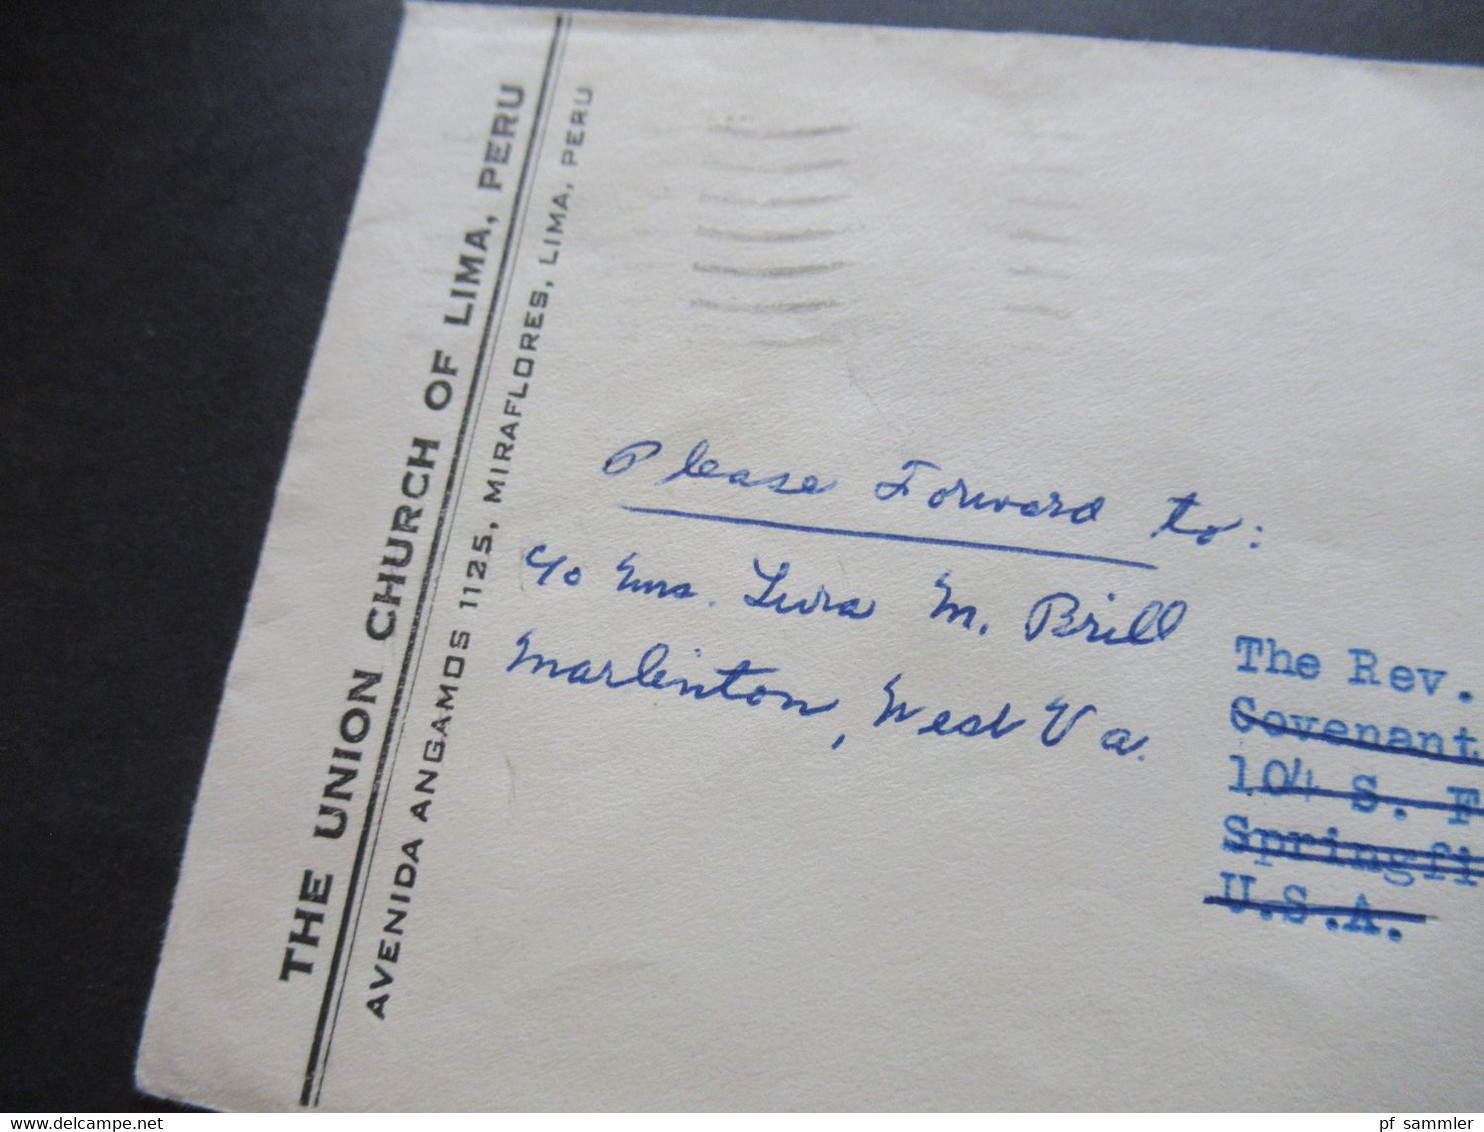 THE UNION CHURCH OF LIMA, PERU
AVENIDA ANGAMOS 1125, MIRAFLORES, LIMA, PERU
Please Forward to:
c/o Mrs. Lura M. Brill
Marlinton, West Va.
The Rev.
Covenant
104 S. F
Springfi
U.S.A.
delcampe.net
pf_sammler